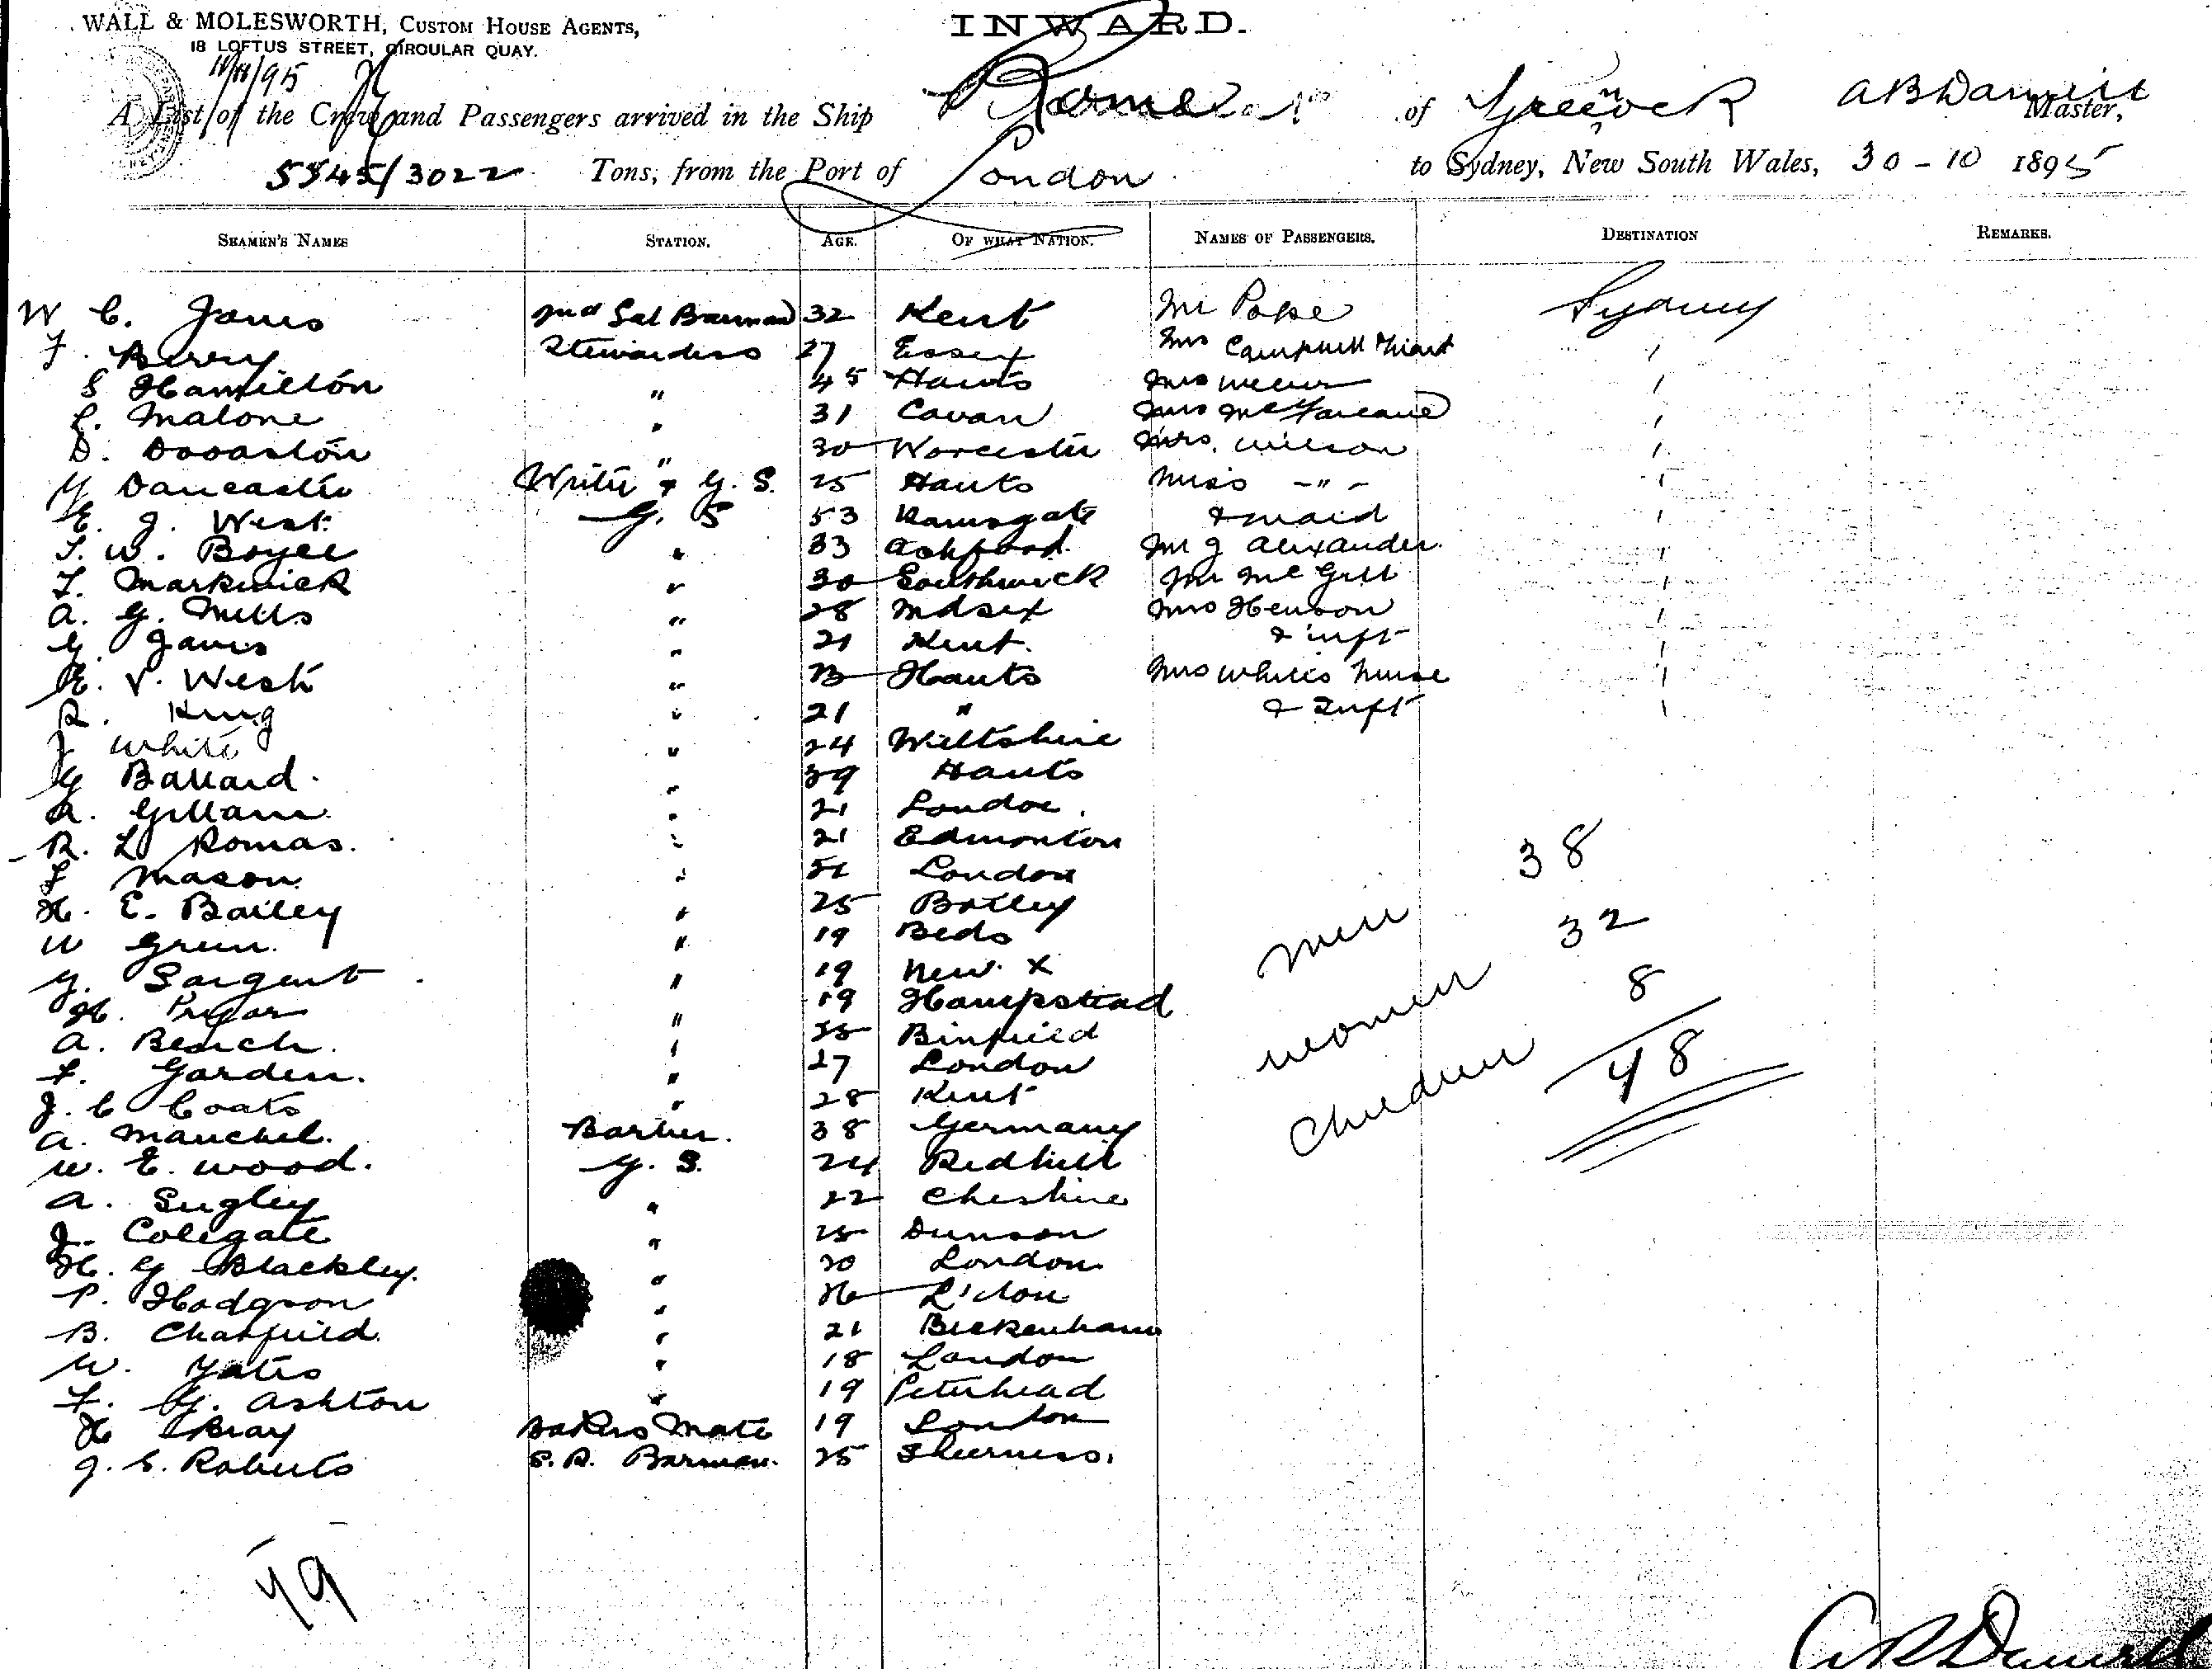 WALL & MOLESWORTH, CUSTOM HOUSE AGENTS,
18 LOFTUS STREET, CIRCULAR QUAY.
INWARD.
A List of the Crew and Passengers arrived in the Ship Rome of Greenock A B Daniell Master,
5545/3022 Tons, from the Port of London to Sydney, New South Wales, 30-10 1895
SEAMEN'S NAMES STATION. AGE. OF WHAT NATION. NAMES OF PASSENGERS. DESTINATION REMARKS.
W C. 32 Kent Mr Pope Sydney
F. Berry Stewardess 27 Essex Mrs Campbell
S Hamilton " 45 Hants Mrs
L. Malone " 31 Cavan Mrs McFarlane
D. Dovaston " 30 Worcester Mrs. Wilson
G Dancaster Writer & G. S. 25 Hants Miss -"-
E. J. West G. S 53 Ramsgate & maid
T. W. Boyce " 33 Ashford. Mr J Alexander.
F. Markwick " 30 Southwick Mr McGill
A. G. Mills " 28 Mdsex Mrs Henson
G. " 21 Kent. & inft
E. V. West " 23 Hants Mrs White's nurse
R. King " 21 " & Inft
J White " 24 Wiltshire
G Ballard. " 39 Hants
A. Gillam. " 21 London.
R. L Romas. " 21 Edmonton
F Mason " London
H. E. Bailey " 25 Botley
W Green. " 19 Beds
G. Sargent " 19 New X
H. " 19 Hampstead
A. Beach. " Binfield
F. Garden. " 27 London
J. C Coats " 28 Kent
A. Manchel. Barber. 38 Germany
W. E. Wood. G. S. 24 Redhill
A. Sugley " 22 Cheshire
J. Colegate " 25
H. G Blackley. " 20 London
P. Hodgson " L'don
B. Chatfield. " 21 Beckenham
W. Yates " 18 London
F. G. Ashton " 19 Peterhead
H Bray Bakers Mate 19 London
J. S. Roberts S.R. Barman. 25 Sheerness.
men 38
women 32
Children 8
48
A B Daniell